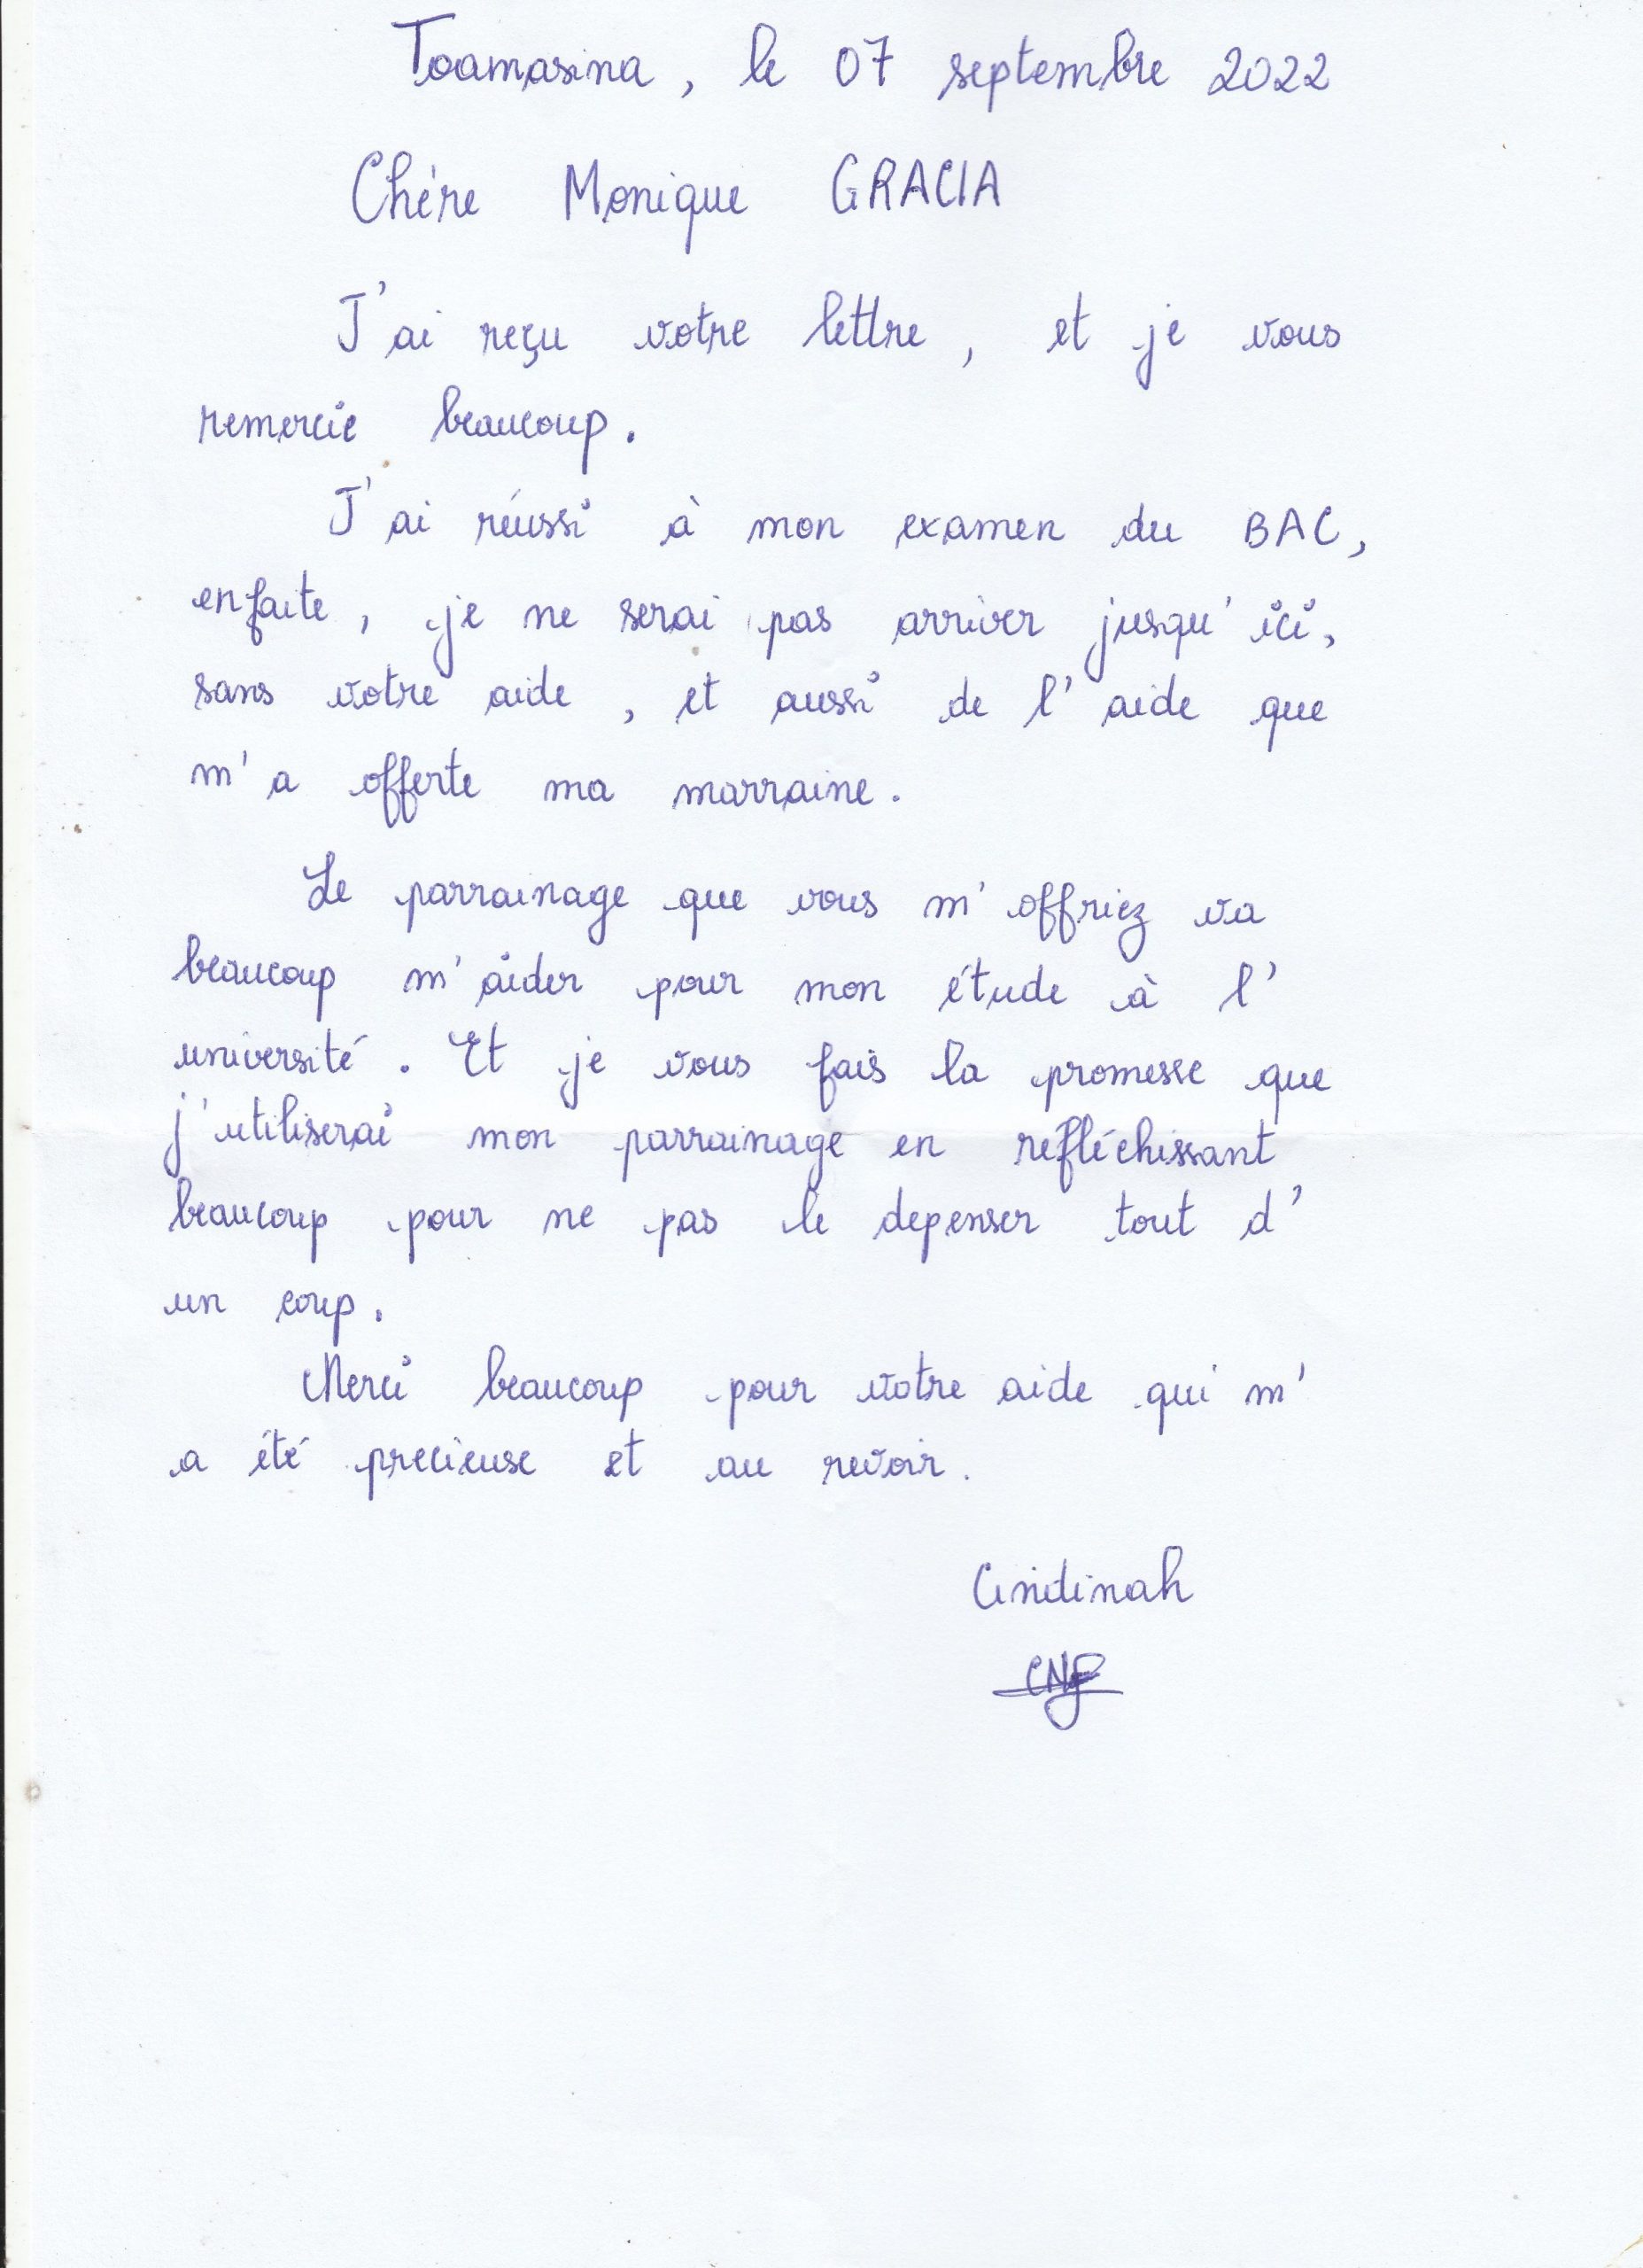 Toamasina, le 07 septembre 2022
Chère Monique GRACIA
J'ai reçu votre lettre, et je vous
remercie beaucoup.
J'ai réussi à mon examen du BAC,
enfaite, je ne serai pas arriver jusqu'ici,
sans votre aide, et aussi de l'aide que
m'a offerte ma marraine.
Le parrainage que vous m'offriez va
beaucoup m'aider pour mon étude à l'
université. Et je vous fais la promesse que
j'utiliserai mon parrainage en réfléchissant
beaucoup pour ne pas le depenser tout d'
un coup.
Merci beaucoup pour votre aide qui m'
a été precieuse et au revoir.